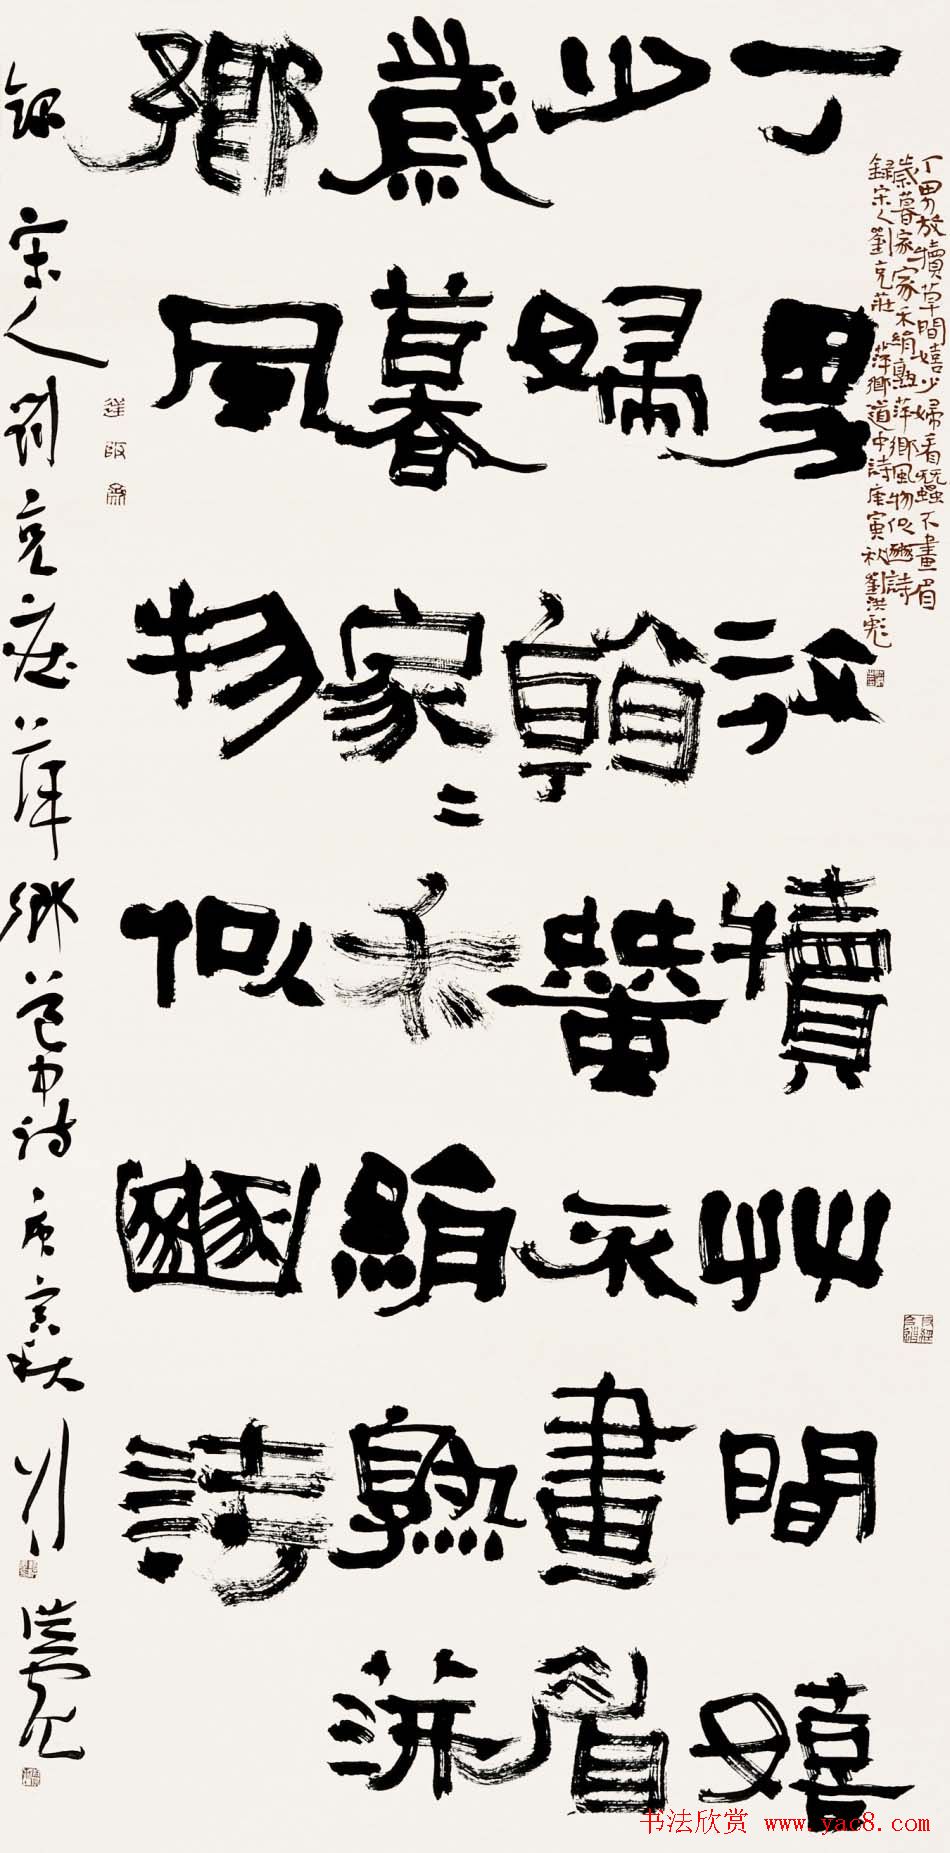 丁男放犢草間嬉少婦看蠶不畫眉
歲暮家家禾絹熟萍鄉風物似豳詩
錄宋人劉克莊萍鄉道中詩庚寅秋劉洪彪
丁男放犢艸間嬉
少婦看蠶不畫眉
歲暮家〻禾絹熟萍
鄉風物似豳詩
錄宋人刘克莊萍鄉道中诗庚寅秋刘洪彪
书法欣赏 www.yac8.com